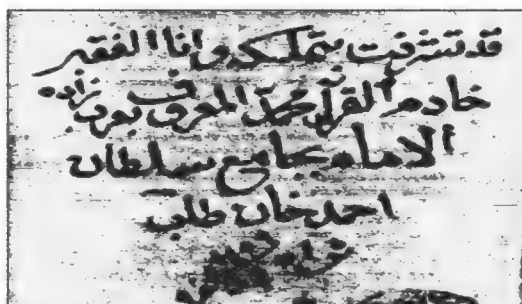 قد تشرفت بتملكه وانا الفقير
خادم القرآن محمد المعروف زاده
الامام بجامع سلطان
احمد خان طاب
ثراه